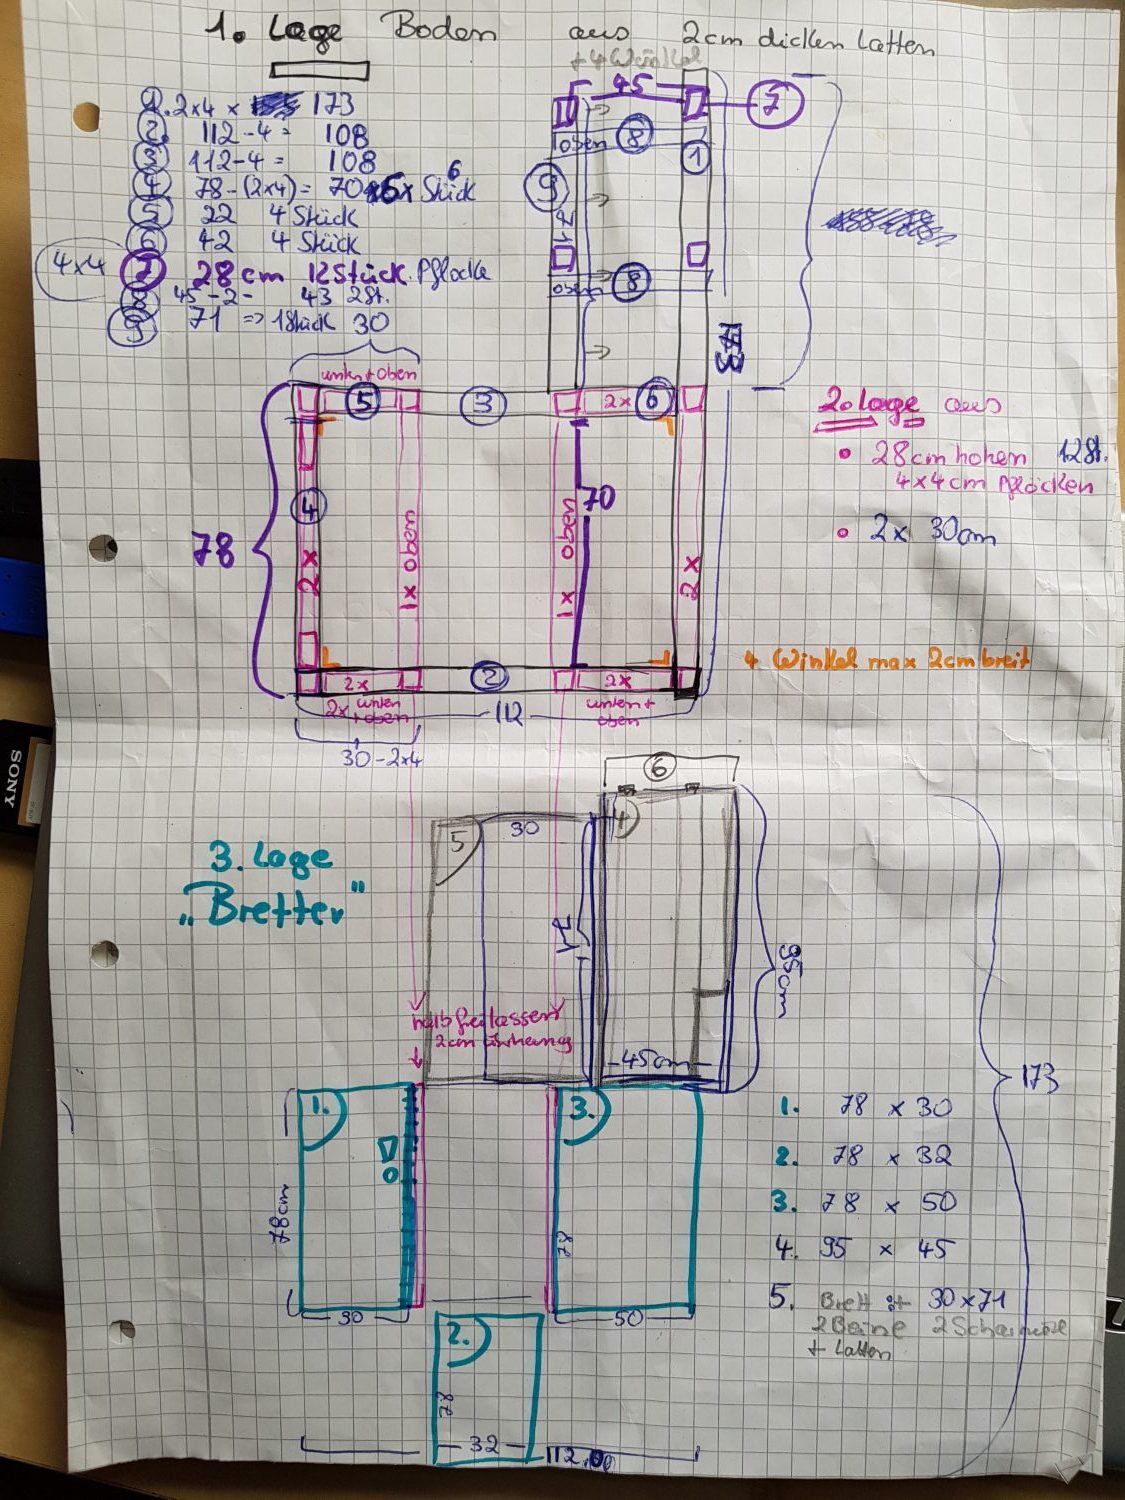 1. Lage Boden aus 2cm dicken Latten
+ 4 Winkel
1. 2x4 x 173
2. 112-4= 108
3. 112-4= 108
4. 78-(2x4)= 70 6 Stück
5. 22 4 Stück
6. 42 4 Stück
4x4 7 28cm 12 Stück Pflöcke
8 45-2- 43 2St.
9 71 => 1 Stück 30
45
7
oben 8
1
9
71
oben 8
173
unten + oben
5
3
2x 6
78
4
2x
1x oben
1x oben
70
2x
2x
2
2x
2x unten + oben
112
unten + oben
30-2x4
2. Lage aus
• 28cm hohen 12St.
4x4cm Pflöcken
• 2x 30cm
4 Winkel max 2cm breit
3. Lage
„Bretter"
6
5
30
4
71
95cm
45cm
halb freilassen
2cm
173
1.
78cm
30
3.
78
50
2.
78
32
112,00
1. 78 x 30
2. 78 x 32
3. 78 x 50
4. 95 x 45
5. Brett 30x71
2 Beine 2 Scharniere
+ Latten
SONY